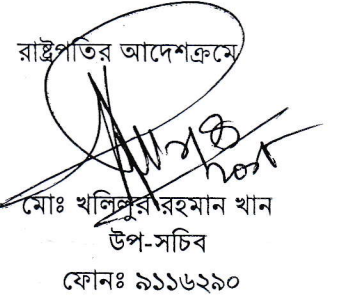 রাষ্ট্রপতির আদেশক্রমে
মোঃ খলিলুর রহমান খান
উপ-সচিব
ফোনঃ ৯১১৬২৯০